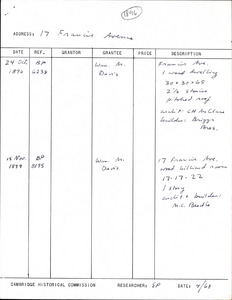 1896
ADDRESS: 17 Francis Avenue
DATE REF. GRANTOR GRANTEE PRICE DESCRIPTION
24 Oct. BP Wm. M. Francis Ave.
1896 Davis 1 wood dwelling
30×30×65
2½ stories
pitched roof
builder: Briggs
Bros.
15 Nov. BP Wm. M. 17 Francis Ave.
1899 Davis wood billiard room
17-17-22
1 story
archt + builder:
CAMBRIDGE HISTORICAL COMMISSION RESEARCHER: SP DATE: 9/68